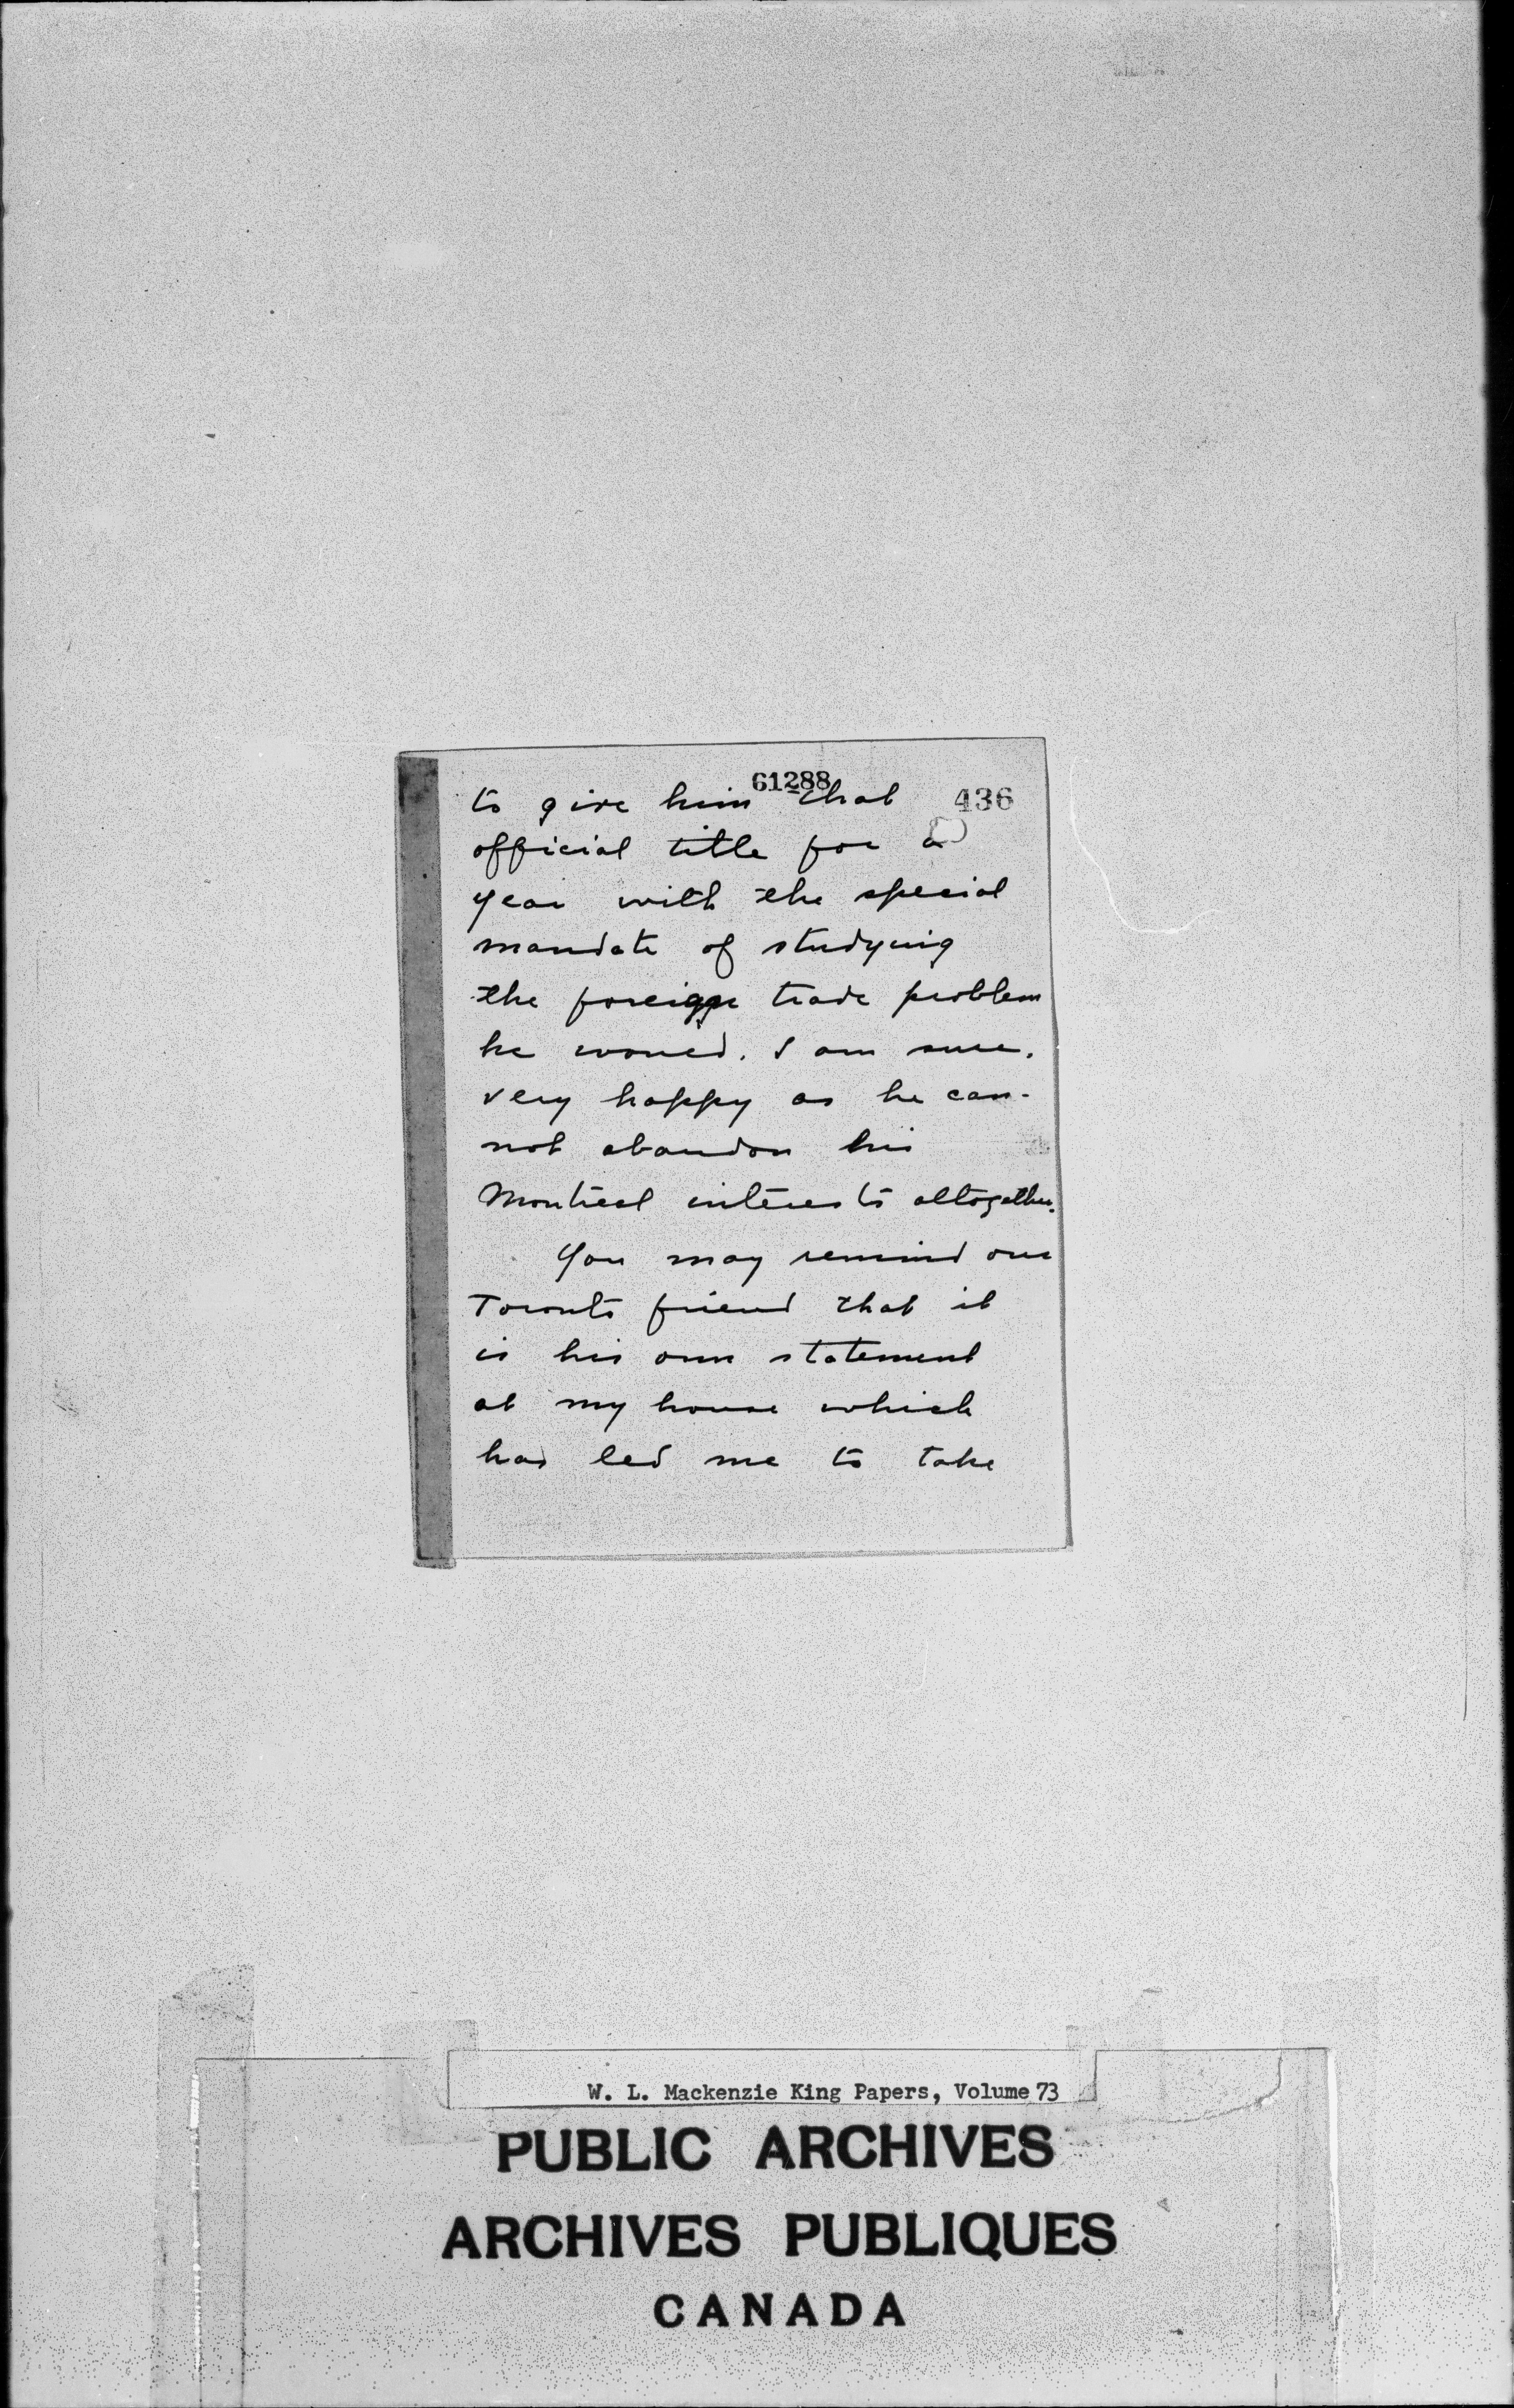 61288
436
to give him that
official title for a
year with the special
mandate of studying
the foreign trade problem
he would, I am sure,
very happy as he can-
not abandon his
Montreal interests altogether.
You may remind our
Toronto friend that it
is his own statement
at my house which
has led me to take
W. L. Mackenzie King Papers, Volume 73
PUBLIC ARCHIVES
ARCHIVES PUBLIQUES
CANADA